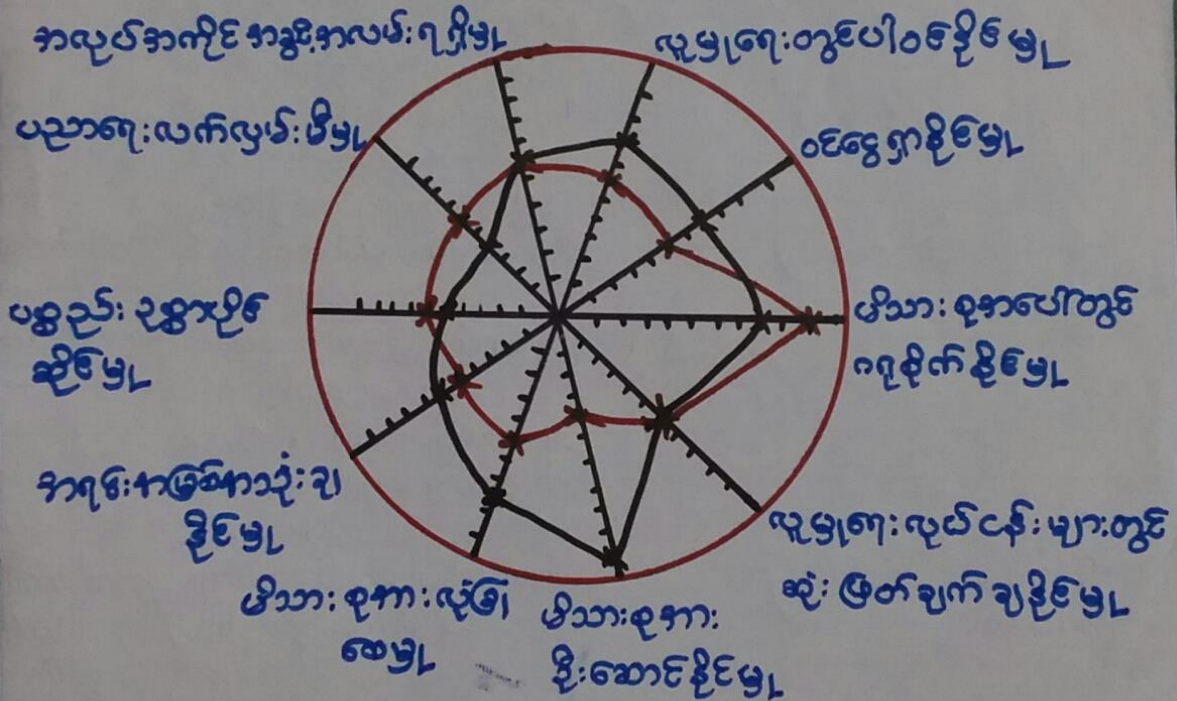 အလုပ်အကိုင် အခွင့်အလမ်း ရရှိမှု
လူမှုရေးတွင်ပါဝင်နိုင်မှု
ပညာရေးလက်လှမ်းမီမှု
ဝင်ငွေရှာနိုင်မှု
ပစ္စည်းဥစ္စာပိုင်
ဆိုင်မှု
မိသားစုအပေါ်တွင်
ဂရုစိုက်နိုင်မှု
အရင်းအမြစ်အသုံးချ
နိုင်မှု
လူမှုရေးလုပ်ငန်းများတွင်
ဆုံးဖြတ်ချက်ချနိုင်မှု
မိသားစုအားလုံခြုံ
စေမှု
မိသားစုအား
ဦးဆောင်နိုင်မှု